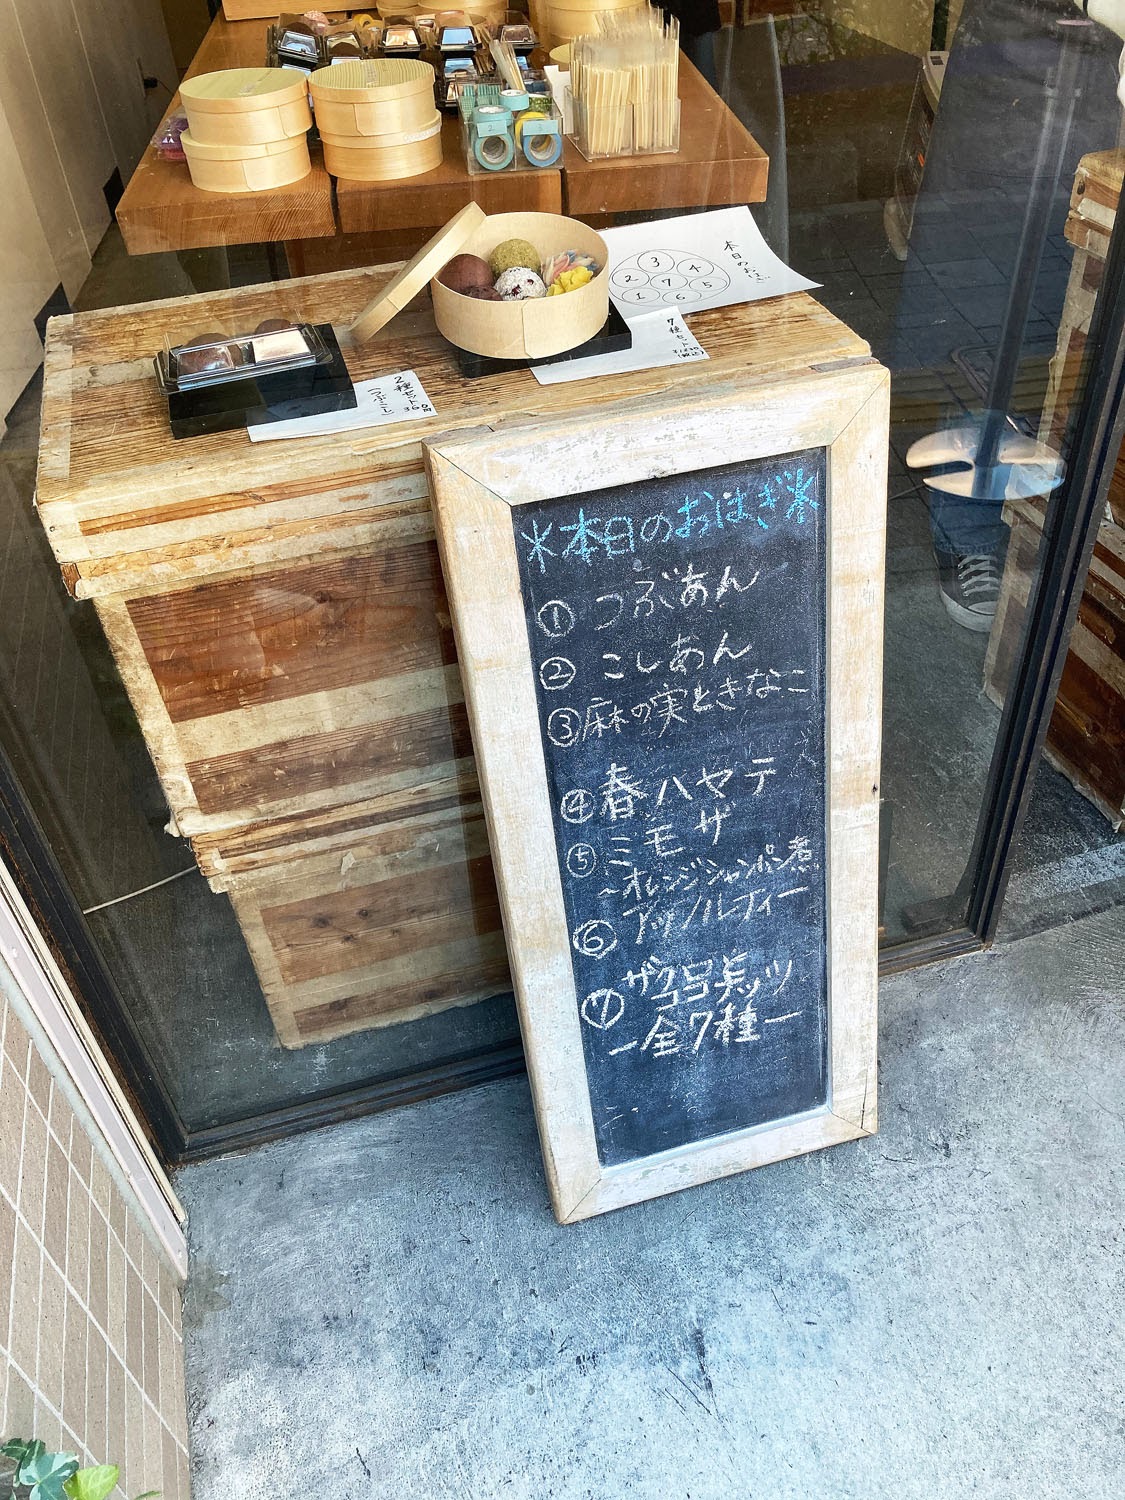 本日のおはぎ
3
4
2
7
5
1
6
7種セット
(税込)
2種セット
360円
(つぶ・こし)
*本日のおはぎ*
① つぶあん
② こしあん
③ 麻の実ときなこ
④ 春ハヤテ
⑤ ミモザ
~オレンジシャンパン煮
⑥
⑦ ザクロ
ココナッツ
ー全7種ー